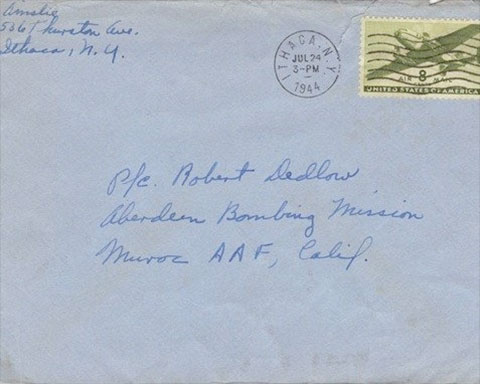 Amslie
536 Thurston Ave.
Ithaca, N.Y.
ITHACA, N.Y.
JUL 24
3-PM
1944
8
AIR MAIL
UNITED STATES OF AMERICA
Pfc. Robert Dedlow
Aberdeen Bombing Mission
Muroc AAF, Calif.